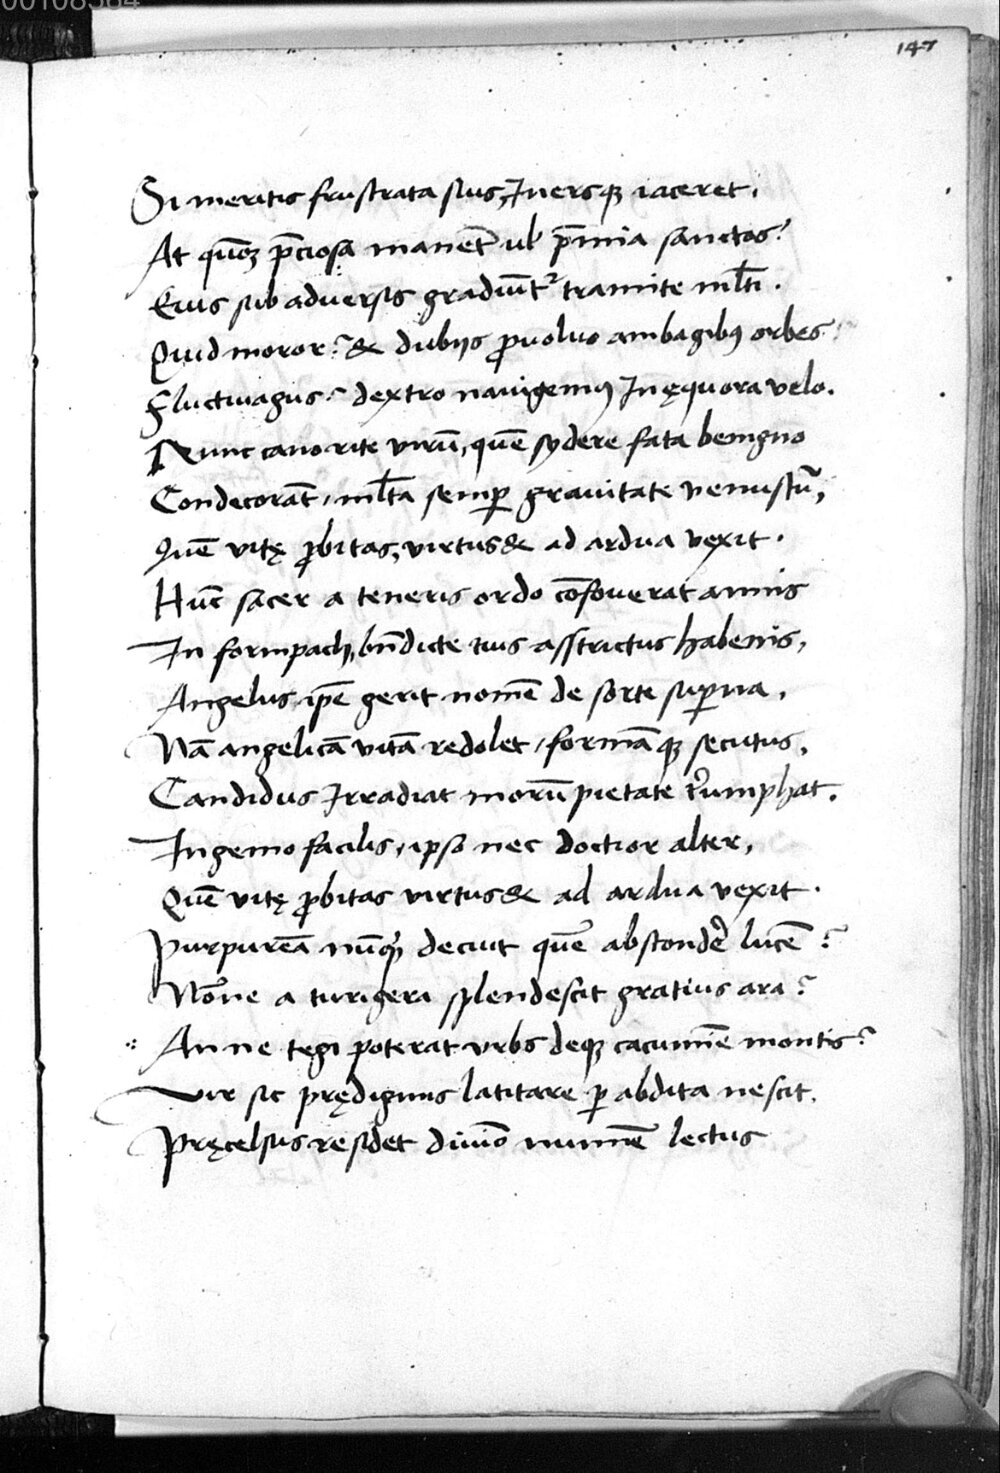 147
Si meritis frustrata suis, Inersq; iaceret.
At quō p̄ciosa manēt ul' p̄mia sanctos?
Eius sub adversis gradiūt᷑ tramite ml̄ti.
Quid moror? & dubijs ꝓvoluo ambagibꝰ orbes
Fluctivagus? dextro navigemꝰ In ęquora velo.
Nunc cano rite virū, quē sydere fata benigno
Condecorāt, ml̄ta semꝑ gravitate venustū,
Quē vitę ꝓbitas, virtus & ad ardua vexit.
Hūc sacer a teneris ordo cōfoverat annis
In formpach, bn̄dicte tuis asstrictus habenis,
Angelus ip̄e gerit nomē de sorte suꝑna,
Nā angelicā vitā redolet, formāq; secutus,
Candidus Irradiat morū pietate triumphat.
Ingenio facilis, ipso nec doctior alter,
Quē vitę ꝓbitas virtus & ad ardua vexit.
Purpureā nūq̄ decuit quē abscondē lucē?
Nōne a turigera splendescit gratius ara?
An ne tegi poterat urbs deq; cacumīe montis?
Vir sic prędignus latitare ꝑ abdita nescit.
Pręcelsus residet divīo numīe lectus